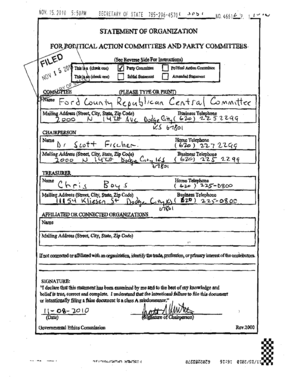 NOV. 15. 2010 5:50PM SECRETARY OF STATE 785-296-4570
STATEMENT OF ORGANIZATION
FOR POLITICAL ACTION COMMITTEES AND PARTY COMMITTEES
FILED
(See Reverse Side For Instructions)
NOV 15 201
This is a (check one) ✓ Party Committee Political Action Committee
This is an (check one) Initial Statement Amended Statement
COMMITTEE (PLEASE TYPE OR PRINT)
Name Ford County Republican Central Committee
Mailing Address (Street, City, State, Zip Code) Business Telephone
2000 N 14th Ave Dodge City (620) 225 2299
KS 67801
CHAIRPERSON
Name Home Telephone
Dr Scott Fischer (620) 227 2295
Mailing Address (Street, City, State, Zip Code) Business Telephone
2000 N 14th Dodge City KS (620) 225 2299
67801
TREASURER
Name Home Telephone
Chris Boys (620) 225-0800
Mailing Address (Street, City, State, Zip Code) Business Telephone
11154 Dodge City KS (620) 225-0800
67801
AFFILIATED OR CONNECTED ORGANIZATIONS
Name
Mailing Address (Street, City, State, Zip Code)
If not connected or affiliated with an organization, identify the trade, profession, or primary interest of the contributors.
SIGNATURE:
"I declare that this statement has been examined by me and to the best of my knowledge and
belief is true, correct and complete. I understand that the intentional failure to file this document
or intentionally filing a false document is a class A misdemeanor."
11-08-2010
(Date) (Signature of Chairperson)
Governmental Ethics Commission Rev.2000